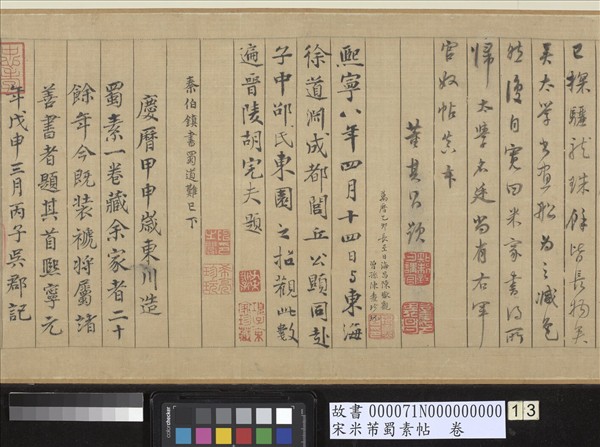 已探驪龍珠餘皆長物矣
吳太學書畫船為之減色
然後自寬曰米家書得所
歸太學名廷尚有右軍
官奴帖真本
董其昌題
萬曆乙卯長至日海昌陳瓛觀
曾孫陳
熙寧八年四月十四日與東海
徐道淵成都閭丘公顯同赴
子中邵氏東園之招觀此數
遍晉陵胡完夫題
秦伯鎮書蜀道難已下
慶曆甲申歲東川造
蜀素一卷藏余家者二十
餘年今既裝褫將屬諸
善書者題其首熙寧元
年戊申三月丙子吳郡記
故書 000071N000000000 13
宋米芾蜀素帖 卷